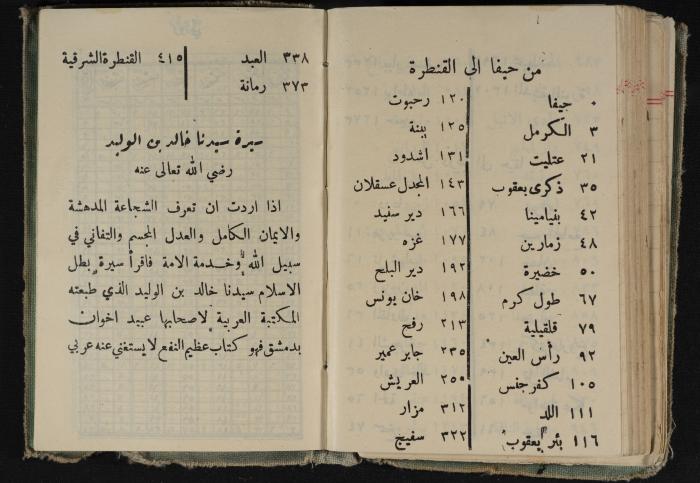 من حيفا الى القنطرة
٠ حيفا
٣ الكرمل
٢١ عتليت
٣٥ ذكرى يعقوب
٤٢ بنيامينا
٤٨ زمارين
٥٠ خضيرة
٦٧ طول كرم
٧٩ قلقيلية
٩٢ رأس العين
١٠٥ كفر جنس
١١١ اللد
١١٦ بئر يعقوب
١٢٠ رحبوت
١٢٥ يبنة
١٣١ اشدود
١٤٣ المجدل عسقلان
١٦٦ دير سنيد
١٧٧ غزه
١٩٢ دير البلح
١٩٨ خان يونس
٢١٣ رفح
٢٣٥ جابر عمير
٢٥٥ العريش
٣١٢ مزار
٣٢٢ سفيج
٣٣٨ العبد
٣٧٣ رمانة
٤١٥ القنطرة الشرقية
سيرة سيدنا خالد بن الوليد
رضي الله تعالى عنه
اذا اردت ان تعرف الشجاعة المدهشة
والايمان الكامل والعدل المجسم والتفاني في
سبيل الله وخدمة الامة فاقرأ سيرة بطل
الاسلام سيدنا خالد بن الوليد الذي طبعته
المكتبة العربية لاصحابها عبيد اخوان
بدمشق فهو كتاب عظيم النفع لا يستغني عنه عربي